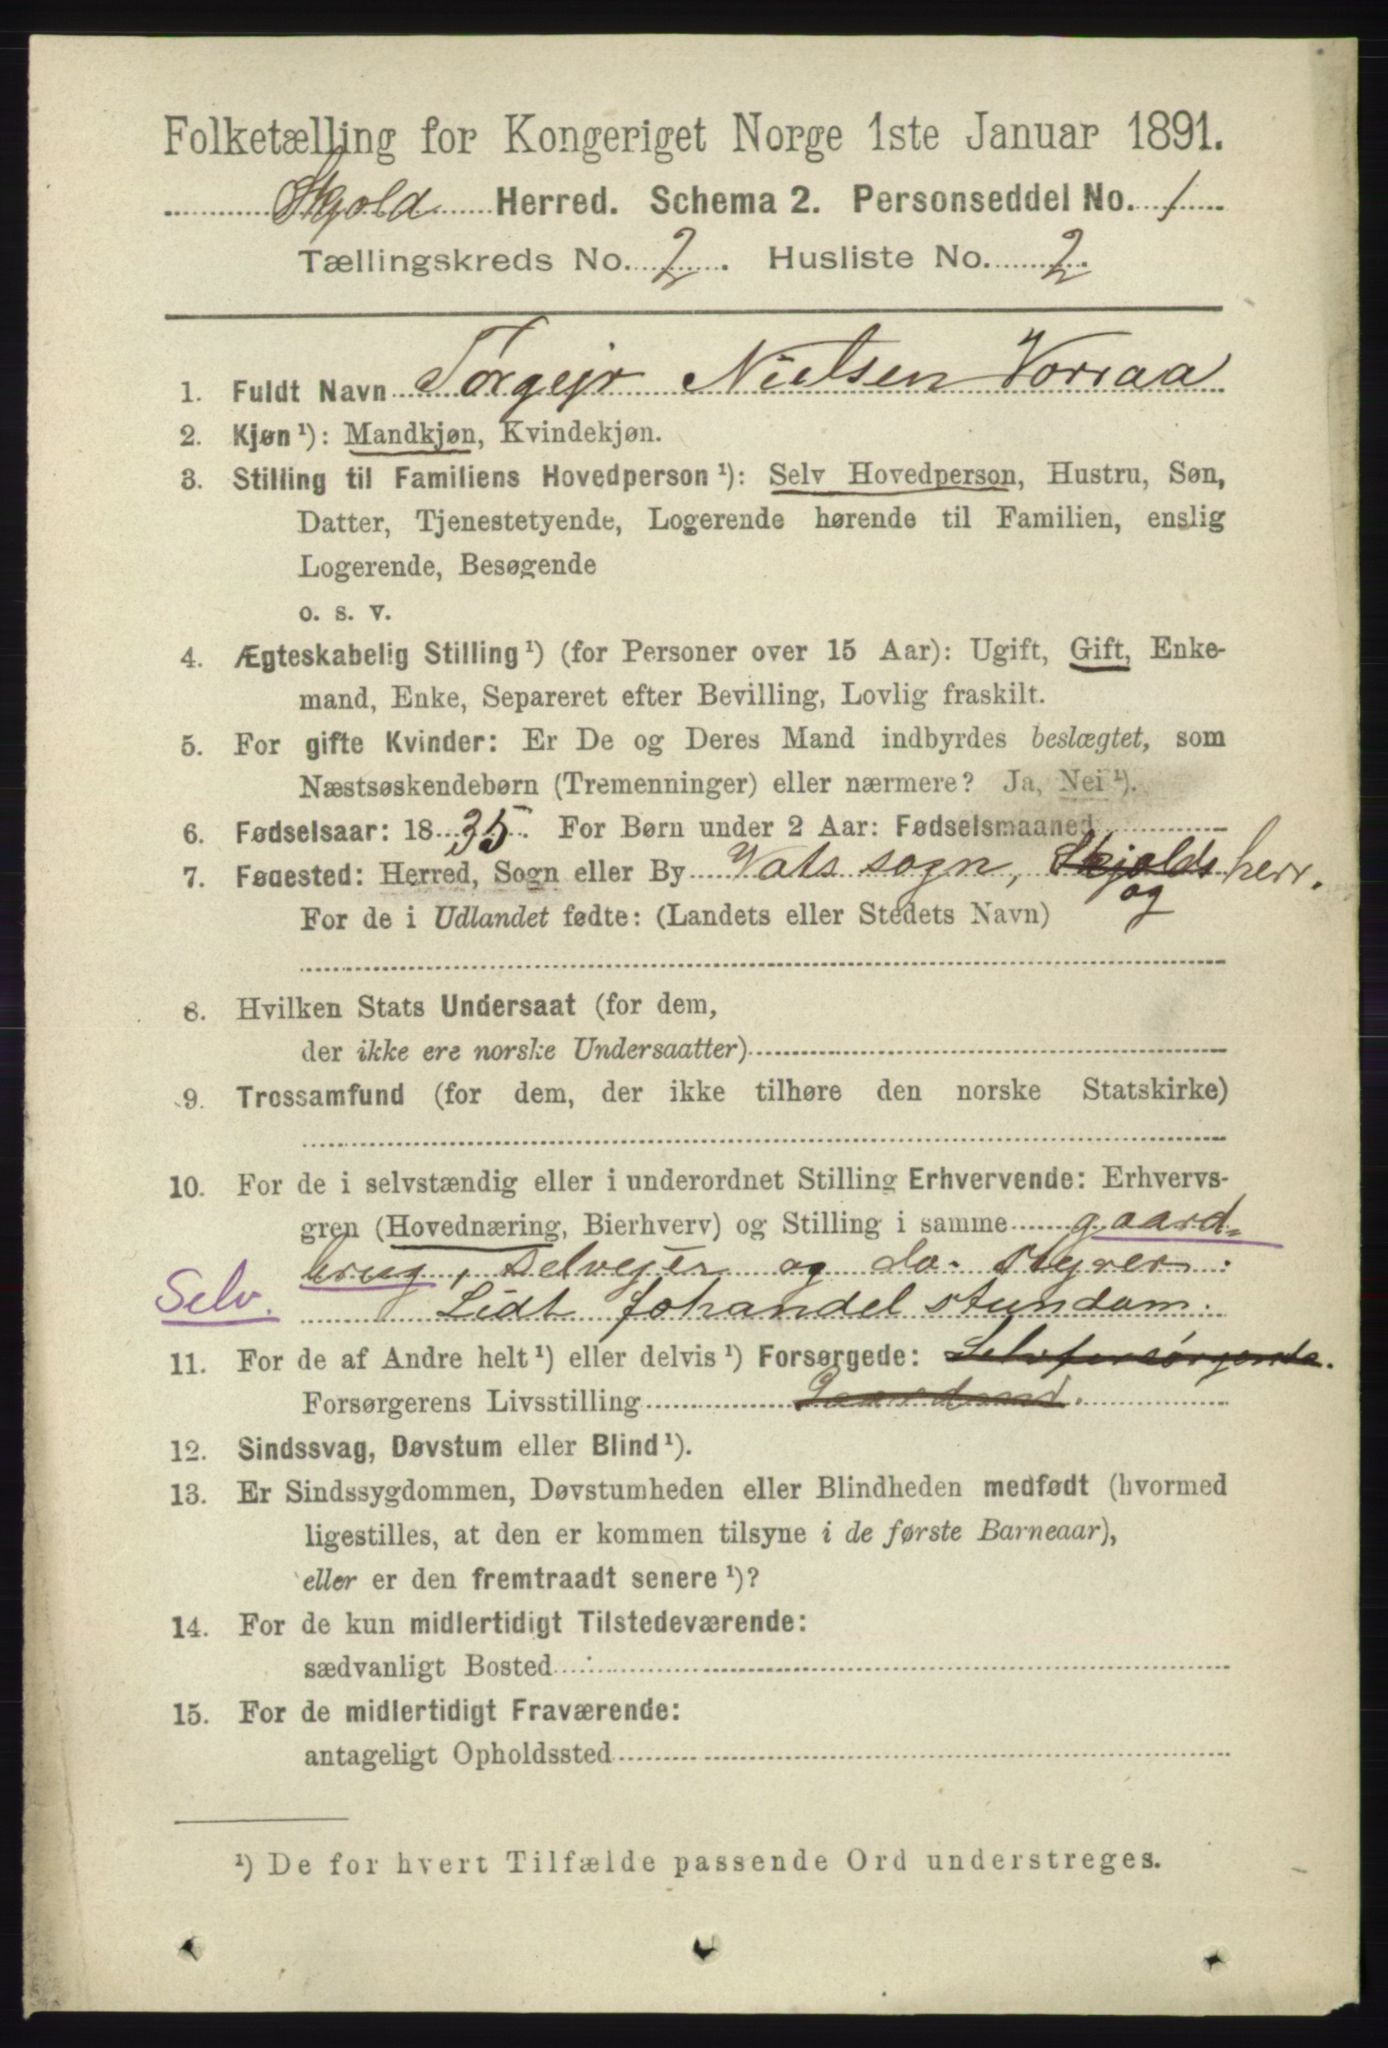 Folketælling for Kongeriget Norge 1ste Januar 1891.
Skjold Herred. Schema 2. Personseddel No. 1
Tællingskreds No. 2. Husliste No. 2.
1. Fuldt Navn Torgejr Nielsen Vorraa
2. Kjøn ¹): Mandkjøn, Kvindekjøn.
3. Stilling til Familiens Hovedperson ¹): Selv Hovedperson, Hustru, Søn,
Datter, Tjenestetyende, Logerende hørende til Familien, enslig
Logerende, Besøgende
o. s. v.
4. Ægteskabelig Stilling ¹) (for Personer over 15 Aar): Ugift, Gift, Enke-
mand, Enke, Separeret efter Bevilling, Lovlig fraskilt.
5. For gifte Kvinder: Er De og Deres Mand indbyrdes beslægtet, som
Næstsøskendebørn (Tremenninger) eller nærmere? Ja, Nei ¹).
6. Fødselsaar: 1835. For Børn under 2 Aar: Fødselsmaaned
7. Fødested: Herred, Sogn eller By Vats sogn, Skjolds herr.
og
For de i Udlandet fødte: (Landets eller Stedets Navn)
8. Hvilken Stats Undersaat (for dem,
der ikke ere norske Undersaatter)
9. Trossamfund (for dem, der ikke tilhøre den norske Statskirke)
10. For de i selvstændig eller i underordnet Stilling Erhvervende: Erhvervs-
gren (Hovednæring, Bierhverv) og Stilling i samme gaard-
brug, Selvejer og do. Styrer.
Selv. Lidt fohandel stundom.
11. For de af Andre helt ¹) eller delvis ¹) Forsørgede: Selvforsörgende.
Forsørgerens Livsstilling
12. Sindssvag, Døvstum eller Blind ¹).
13. Er Sindssygdommen, Døvstumheden eller Blindheden medfødt (hvormed
ligestilles, at den er kommen tilsyne i de første Barneaar),
eller er den fremtraadt senere ¹)?
14. For de kun midlertidigt Tilstedeværende:
sædvanligt Bosted
15. For de midlertidigt Fraværende:
antageligt Opholdssted
¹) De for hvert Tilfælde passende Ord understreges.